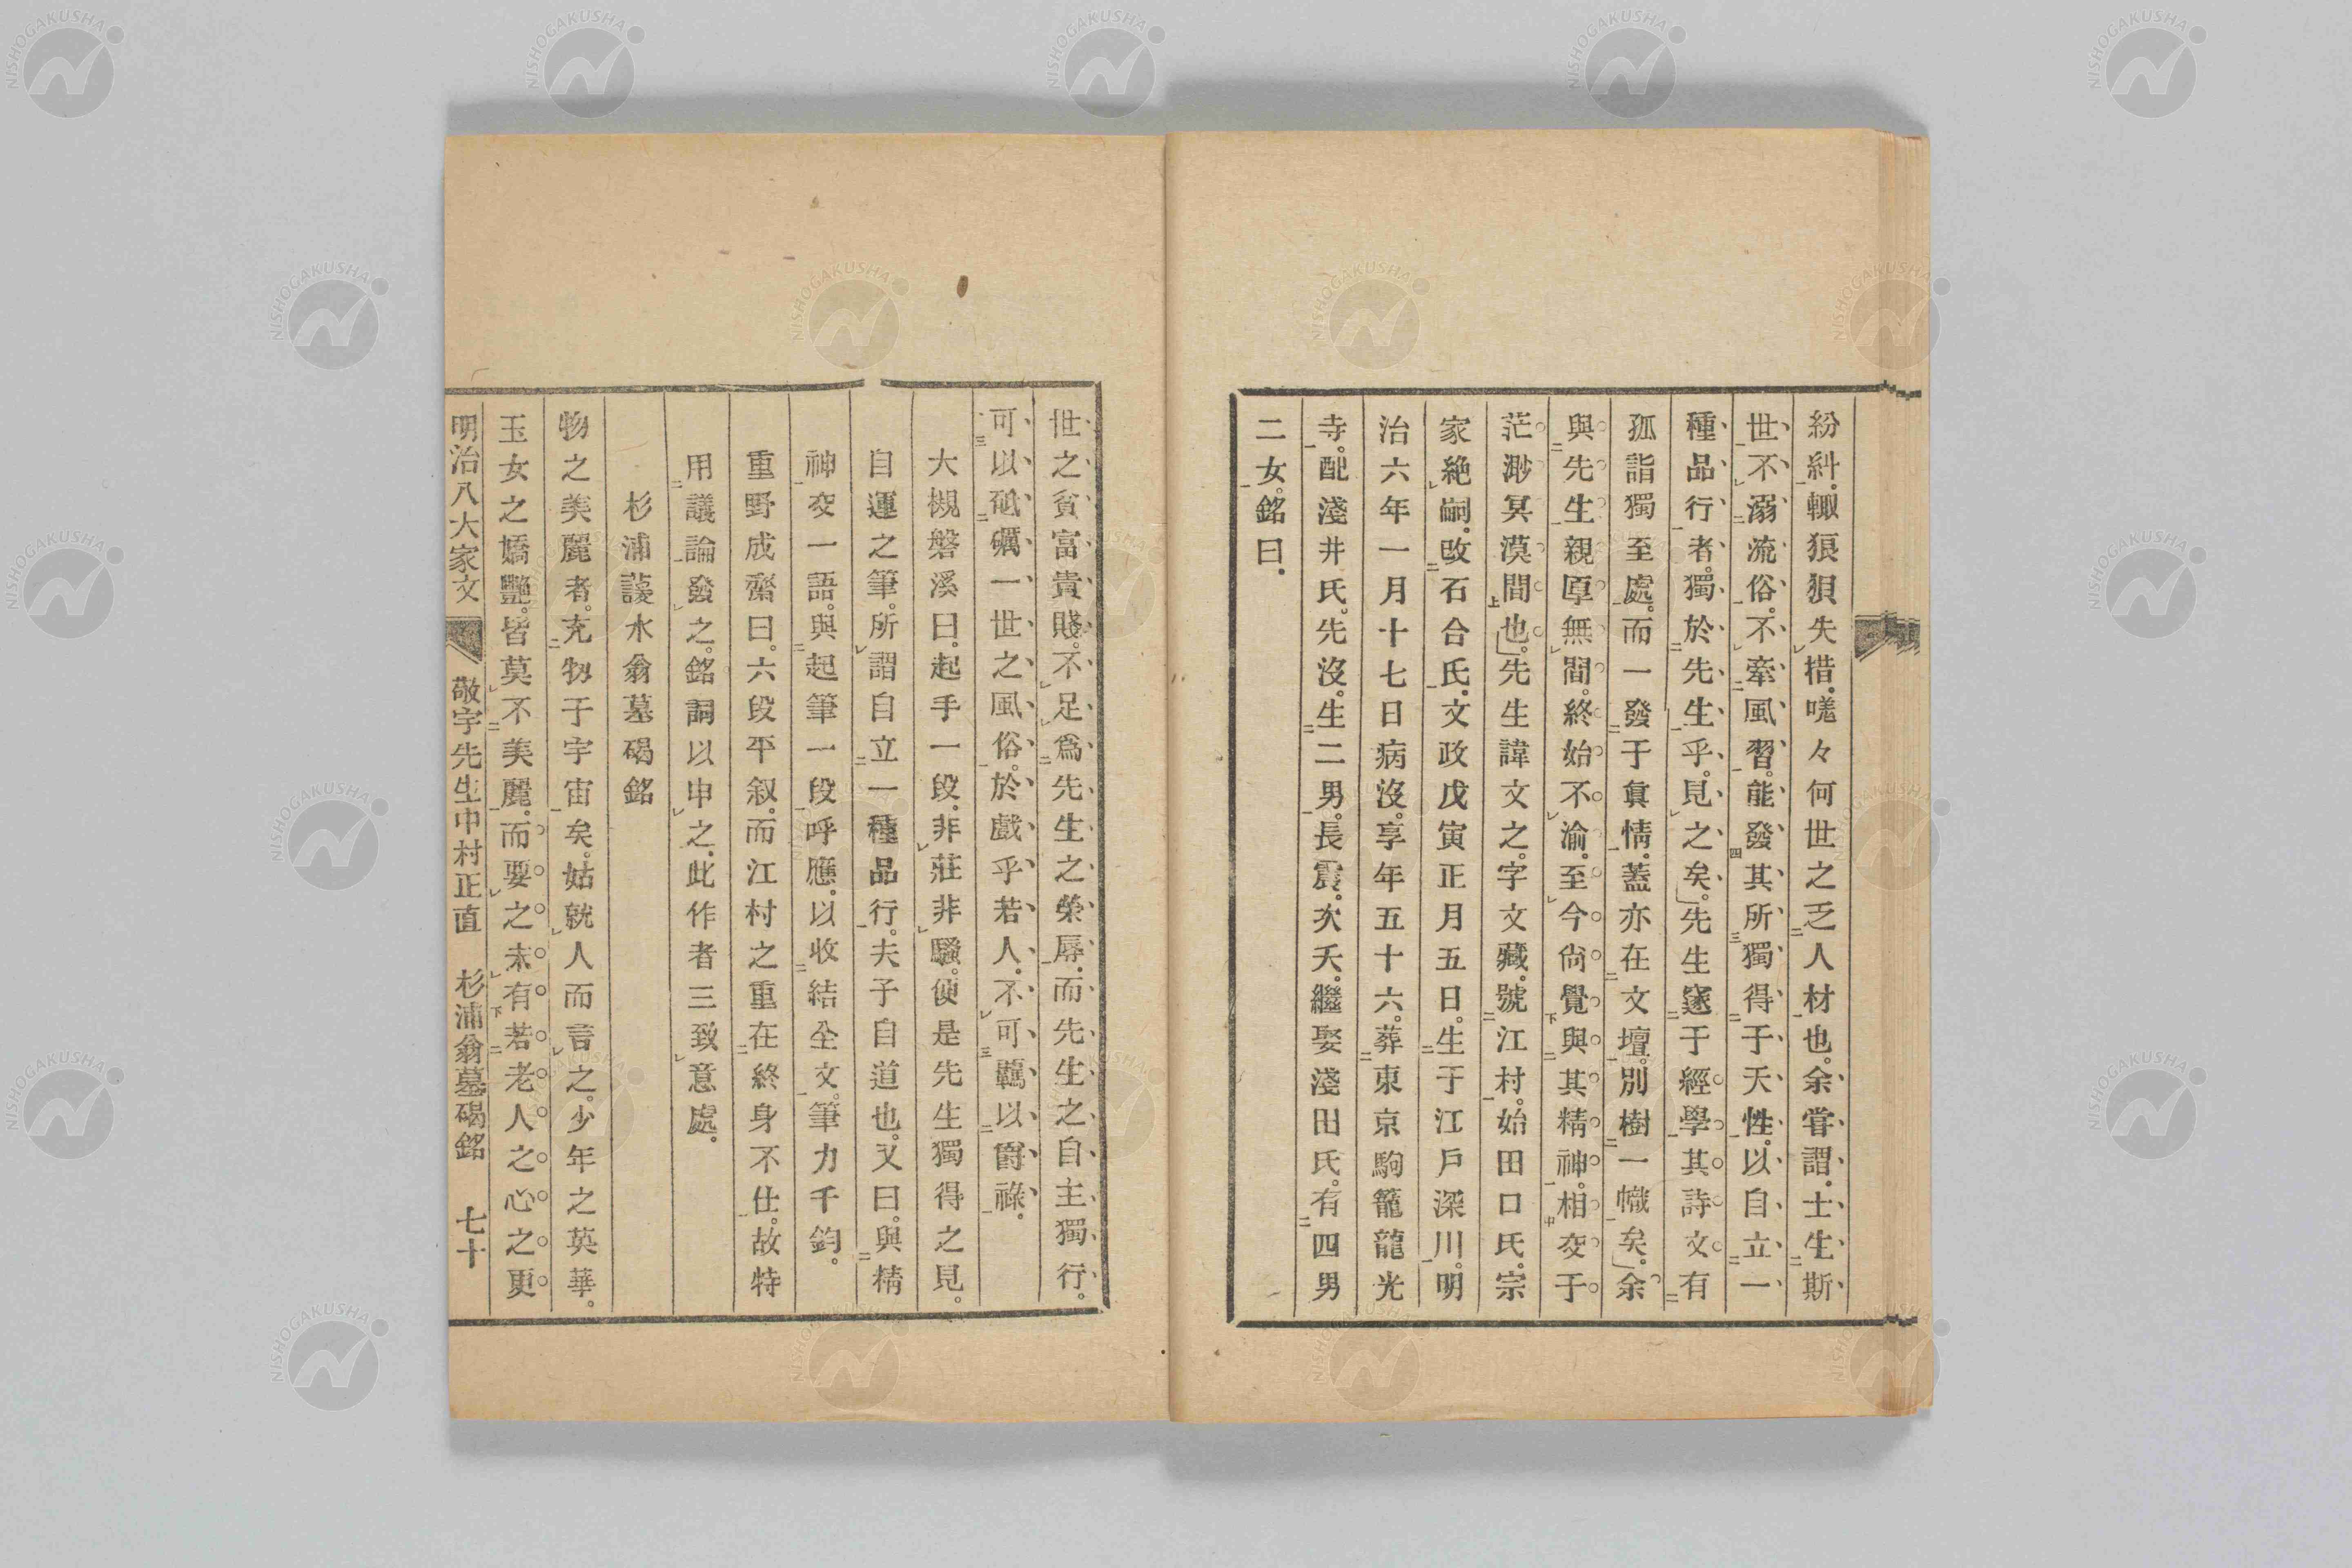 紛糾。輙狼狽失措。嘆々何世之乏人材也。余甞謂。士生斯
世。不溺流俗。不牽風習。能發其所獨得于天性。以自立一
種品行者。獨於先生乎。見之矣。先生邃于經學。其詩文有
孤詣獨至處。而一發于眞情。蓋亦在文壇。別樹一幟矣。余
與先生親厚無間。終始不渝。至今尙覺與其精神。相交于
茫渺冥漠間也。先生諱文之。字文藏。號江村。始田口氏。宗
家絶嗣。改石合氏。文政戊寅正月五日。生于江戶深川。明
治六年一月十七日病沒。享年五十六。葬東京駒籠龍光
寺。配淺井氏。先沒。生二男。長震。次夭。繼娶淺田氏。有四男
二女。銘曰。
世之貧富貴賤。不足爲先生之榮辱。而先生之自主獨行。
可以砥礪一世之風俗。於戲乎若人。不可羈以爵祿。
大槻磐溪曰。起手一段。非莊非騷。便是先生獨得之見。
自運之筆。所謂自立一種品行。夫子自道也。又曰。與精
神交一語。與起筆一段呼應。以收結全文。筆力千鈞。
重野成齋曰。六段平叙。而江村之重在終身不仕。故特
用議論發之。銘詞以申之。此作者三致意處。
杉浦蘐水翁墓碣銘
物之美麗者。充牣于宇宙矣。姑就人而言之。少年之英華。
玉女之嬌艷。皆莫不美麗。而要之未有若老人之心之更
明治八大家文 敬宇先生中村正直 杉浦翁墓碣銘 七十
NISHOGAKUSHA